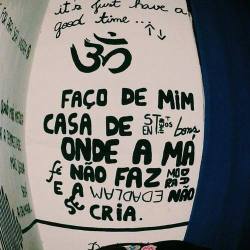 it's just have a
good time..
ॐ
FAÇO DE MIM
CASA DE SENTIMENTOS bons
ONDE A MÁ
fé NÃO FAZ MORADA
E A MALDADE NÃO
SE CRIA.